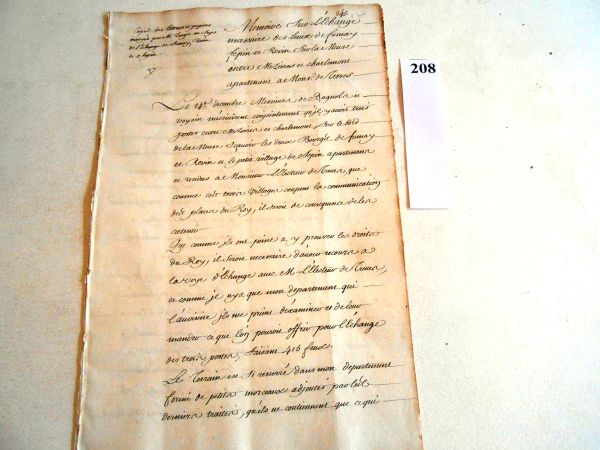 246
Memoire sur l'Echange
necessaire des Lieux de fumay
fepin et Revin sur la Meuse
entre Mezieres et charlemont
apartenant a Mons. de Treves
Copie des
de l'Echange de fumay, Revin
et fepin
208
Le 14e decembre Messieurs de Bagnols et
voysin m'écrivirent conjointement qu'il y avoit trois
postes entre Mezieres et charlemont, sur le bord
de la Meuse sçavoir les deux Bourgs de fumay
et Revin et le petit village de fepin apartenans
et rendus a Monsieur L'Electeur de Treves, que
comme ces trois villages coupent la communication
des places du Roy, il seroit de consequence de les
retenir
Que comme ils ont peine a y prouver les droits
du Roy, il seroit necessaire d'avoir recours a
la voye d'Echange avec M. L'Electeur de Treves,
et comme je n'ya que mon departement qui
l'avoisine ils me prient d'examiner et de leur
mander ce que l'on pouroit offrir pour l'Echange
des trois postes, faisans 416 feux.
Le Terrain est si resserré dans mon departement
formé de petits morceaux adjoutés par les
derniers traités, qu'ils ne contiennent que ce qui